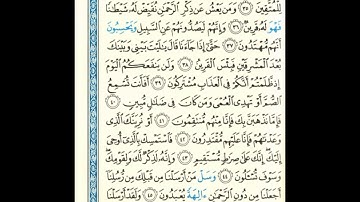 لِلْمُتَّقِينَ ٣٥ وَمَن يَعْشُ عَن ذِكْرِ الرَّحْمَٰنِ نُقَيِّضْ لَهُ شَيْطَٰنًا
فَهْوَ لَهُ قَرِينٌ ٣٦ وَإِنَّهُمْ لَيَصُدُّونَهُمْ عَنِ السَّبِيلِ وَيَحْسِبُونَ
أَنَّهُم مُّهْتَدُونَ ٣٧ حَتَّىٰ إِذَا جَآءَنَا قَالَ يَٰلَيْتَ بَيْنِي وَبَيْنَكَ
بُعْدَ الْمَشْرِقَيْنِ فَبِئْسَ الْقَرِينُ ٣٨ وَلَن يَنفَعَكُمُ الْيَوْمَ
إِذ ظَّلَمْتُمْ أَنَّكُمْ فِي الْعَذَابِ مُشْتَرِكُونَ ٣٩ أَفَأَنتَ تُسْمِعُ
الصُّمَّ أَوْ تَهْدِي الْعُمْيَ وَمَن كَانَ فِي ضَلَٰلٍ مُّبِينٍ ٤٠
فَإِمَّا نَذْهَبَنَّ بِكَ فَإِنَّا مِنْهُم مُّنتَقِمُونَ ٤١ أَوْ نُرِيَنَّكَ الَّذِي
وَعَدْنَٰهُمْ فَإِنَّا عَلَيْهِم مُّقْتَدِرُونَ ٤٢ فَاسْتَمْسِكْ بِالَّذِي أُوحِيَ
إِلَيْكَ إِنَّكَ عَلَىٰ صِرَٰطٍ مُّسْتَقِيمٍ ٤٣ وَإِنَّهُ لَذِكْرٌ لَّكَ وَلِقَوْمِكَ
وَسَوْفَ تُسْـَٔلُونَ ٤٤ وَسَلْ مَنْ أَرْسَلْنَا مِن قَبْلِكَ مِن رُّسُلِنَا
أَجَعَلْنَا مِن دُونِ الرَّحْمَٰنِ ءَالِهَةً يُعْبَدُونَ ٤٥ وَلَقَدْ أَرْسَلْنَا